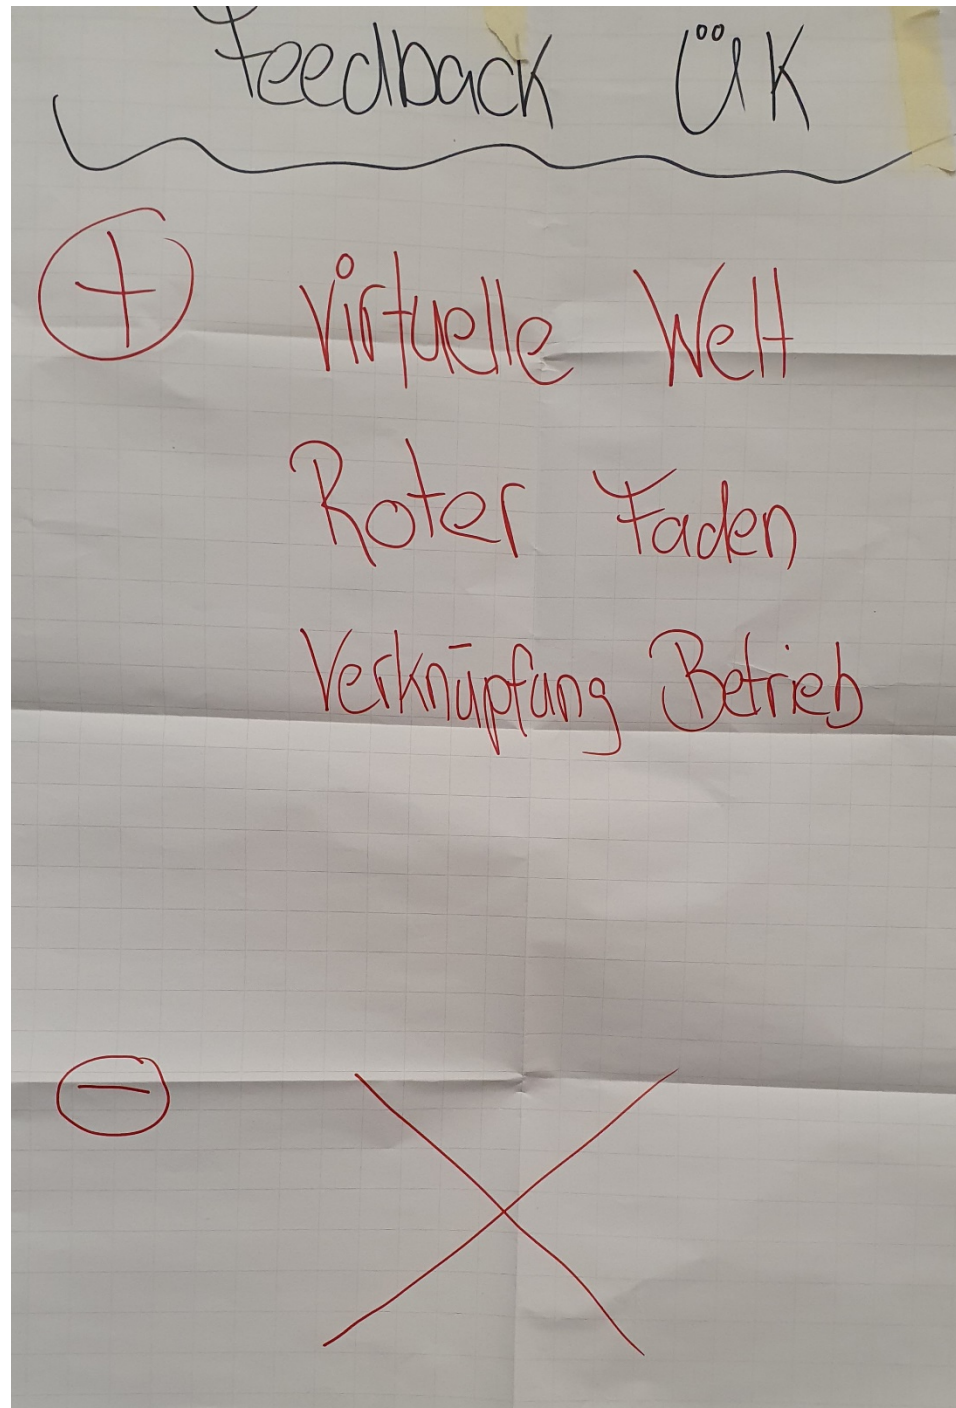 Feedback ÜK
+ Virtuelle Welt
Roter Faden
Verknüpfung Betrieb
-